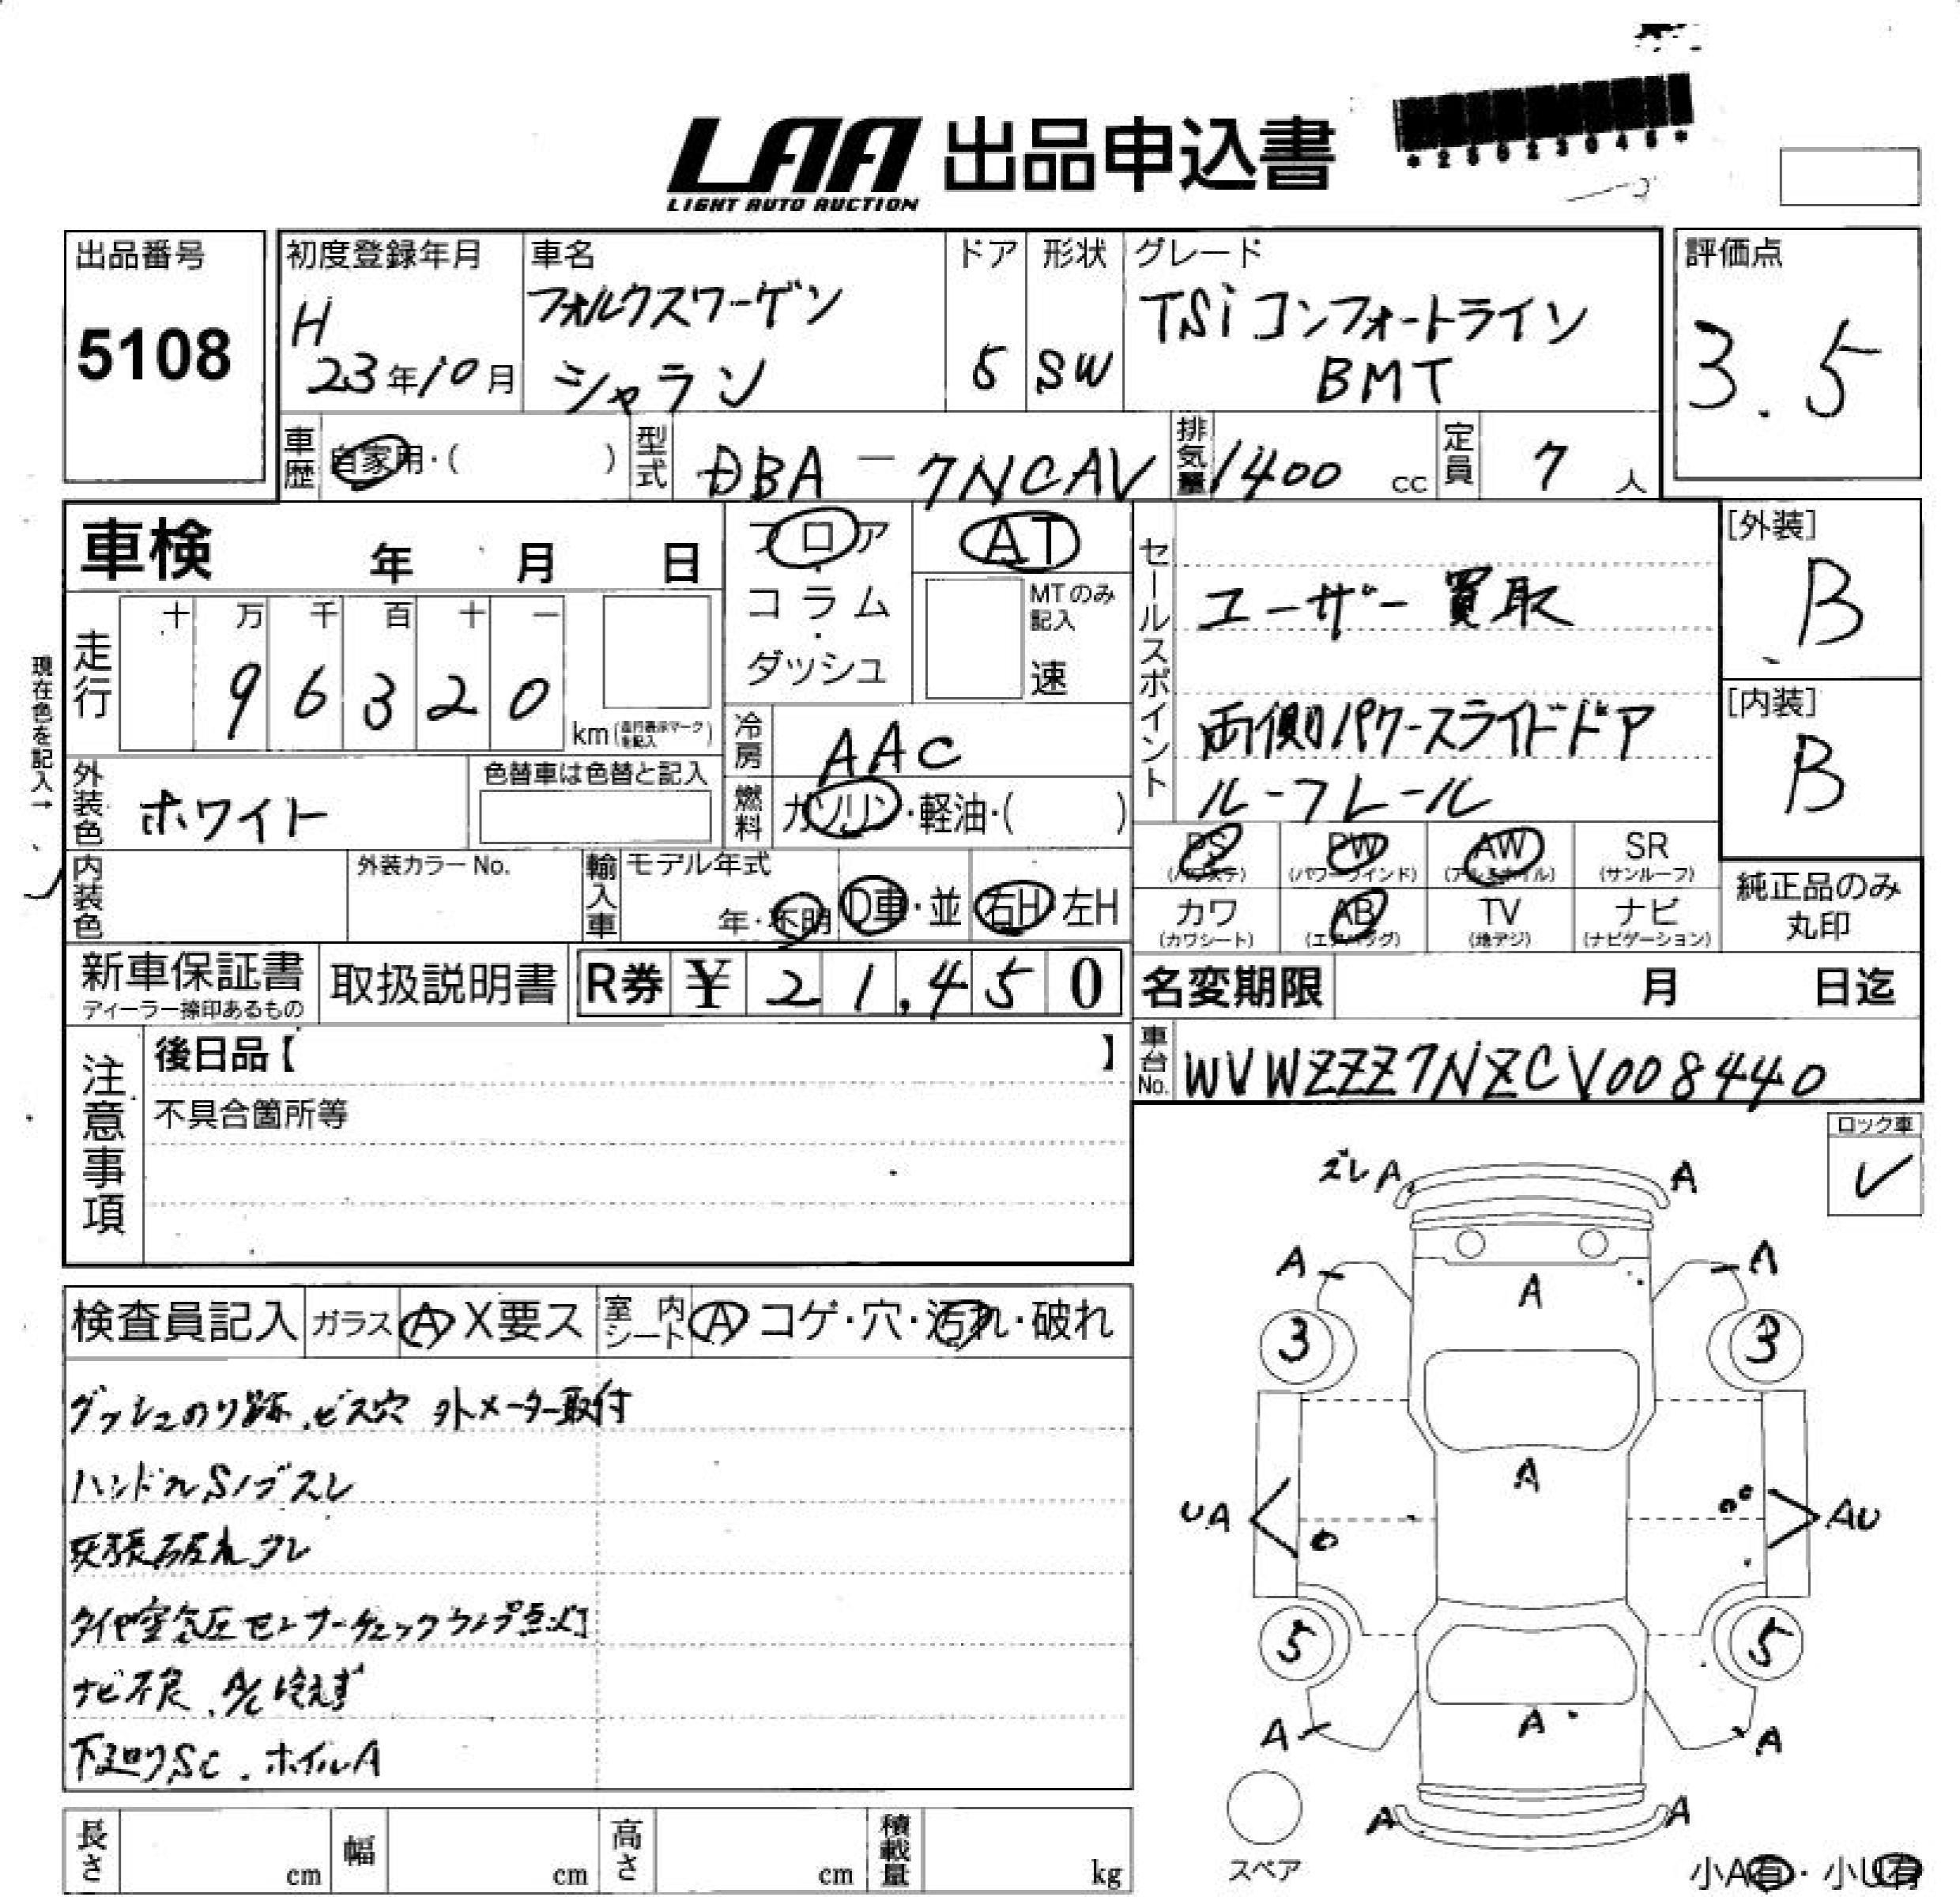 LAA 出品申込書
LIGHT AUTO AUCTION
*25023045*
出品番号
5108
初度登録年月
H
23年10月
車名
フォルクスワーゲン
シャラン
ドア
5
形状
SW
グレード
TSi コンフォートライン
BMT
評価点
3.5
車歴
自家用・( )
型式
DBA - 7NCAV
排気量
1400 cc
定員
7 人
車検 年 月 日
フロア
・
コラム
・
ダッシュ
AT
MTのみ
記入
速
セールスポイント
ユーザー買取
両側パワースライドドア
ルーフレール
[外装]
B
[内装]
B
現在色を記入→
走行
十 万 千 百 十 一
9 6 3 2 0
km (走行表示マークを記入)
冷房
AAC
外装色
ホワイト
色替車は色替と記入
燃料
ガソリン・軽油・( )
PS
(パワステ)
PW
(パワーウィンド)
AW
(アルミホイル)
SR
(サンルーフ)
カワ
(カワシート)
AB
(エアバッグ)
TV
(地デジ)
ナビ
(ナビゲーション)
純正品のみ
丸印
内装色
外装カラーNo.
輸入車
モデル年式
年・不明
D車・並
右H・左H
新車保証書
ディーラー捺印あるもの
取扱説明書
R券 ¥ 21,450
名変期限 月 日迄
車台No.
WVWZZZ7NZCV008440
注意事項
後日品【 】
不具合箇所等
ロック車
✓
検査員記入
ガラス
A X要ス
室内シート
A コゲ・穴・汚れ・破れ
ダッシュのり跡、ビス穴 外メーター取付
ハンドルSノブスレ
天張破れタレ
タイヤ空気圧センサーチェックランプ点灯
ナビ不良、A/C冷えず
下廻りSC、ホイルA
ズレ A
A
A
A
A
3
3
A
UA
AU
5
5
A
A
A
A
A
スペア
小A有・小U有
長さ cm
幅 cm
高さ cm
積載量 kg